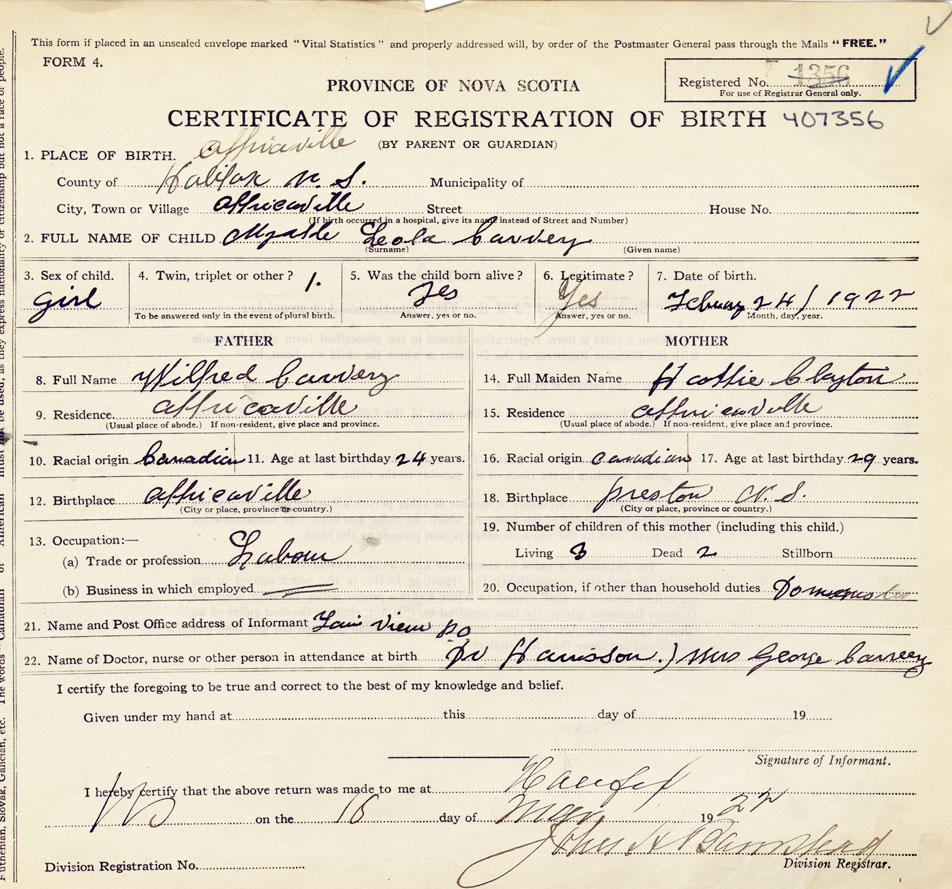 This form if placed in an unsealed envelope marked "Vital Statistics" and properly addressed will, by order of the Postmaster General pass through the Mails "FREE."
FORM 4.
Registered No. 1356
For use of Registrar General only.
PROVINCE OF NOVA SCOTIA
CERTIFICATE OF REGISTRATION OF BIRTH 407356
(BY PARENT OR GUARDIAN)
1. PLACE OF BIRTH. Affricaville
County of Halifax N. S. Municipality of
City, Town or Village Affricaville Street House No.
(If birth occurred in a hospital, give its name instead of Street and Number)
2. FULL NAME OF CHILD Myrtle Leola Carvery
(Surname) (Given name)
3. Sex of child. 4. Twin, triplet or other? 1. 5. Was the child born alive? 6. Legitimate? 7. Date of birth.
girl Yes Yes February 24/ 1922
To be answered only in the event of plural birth. Answer, yes or no. Answer, yes or no. Month, day, year.
FATHER MOTHER
8. Full Name Wilfred Carvery 14. Full Maiden Name Hattie Clayton
9. Residence. Affricaville 15. Residence Affricaville
(Usual place of abode.) If non-resident, give place and province. (Usual place of abode.) If non-resident, give place and province.
10. Racial origin Canadian 11. Age at last birthday 24 years. 16. Racial origin Canadian 17. Age at last birthday 29 years.
12. Birthplace Affricaville 18. Birthplace Preston N. S.
(City or place, province or country.) (City or place, province or country.)
13. Occupation:— 19. Number of children of this mother (including this child.)
(a) Trade or profession. Labour Living 3 Dead 2 Stillborn
(b) Business in which employed 20. Occupation, if other than household duties
21. Name and Post Office address of Informant Fair View PO
22. Name of Doctor, nurse or other person in attendance at birth Dr Harrisson.) Mrs George Carvery
I certify the foregoing to be true and correct to the best of my knowledge and belief.
Given under my hand at this day of 19
Signature of Informant.
I hereby certify that the above return was made to me at Halifax
NS on the 18 day of 19 22
John H Barnstead
Division Registration No. Division Registrar.